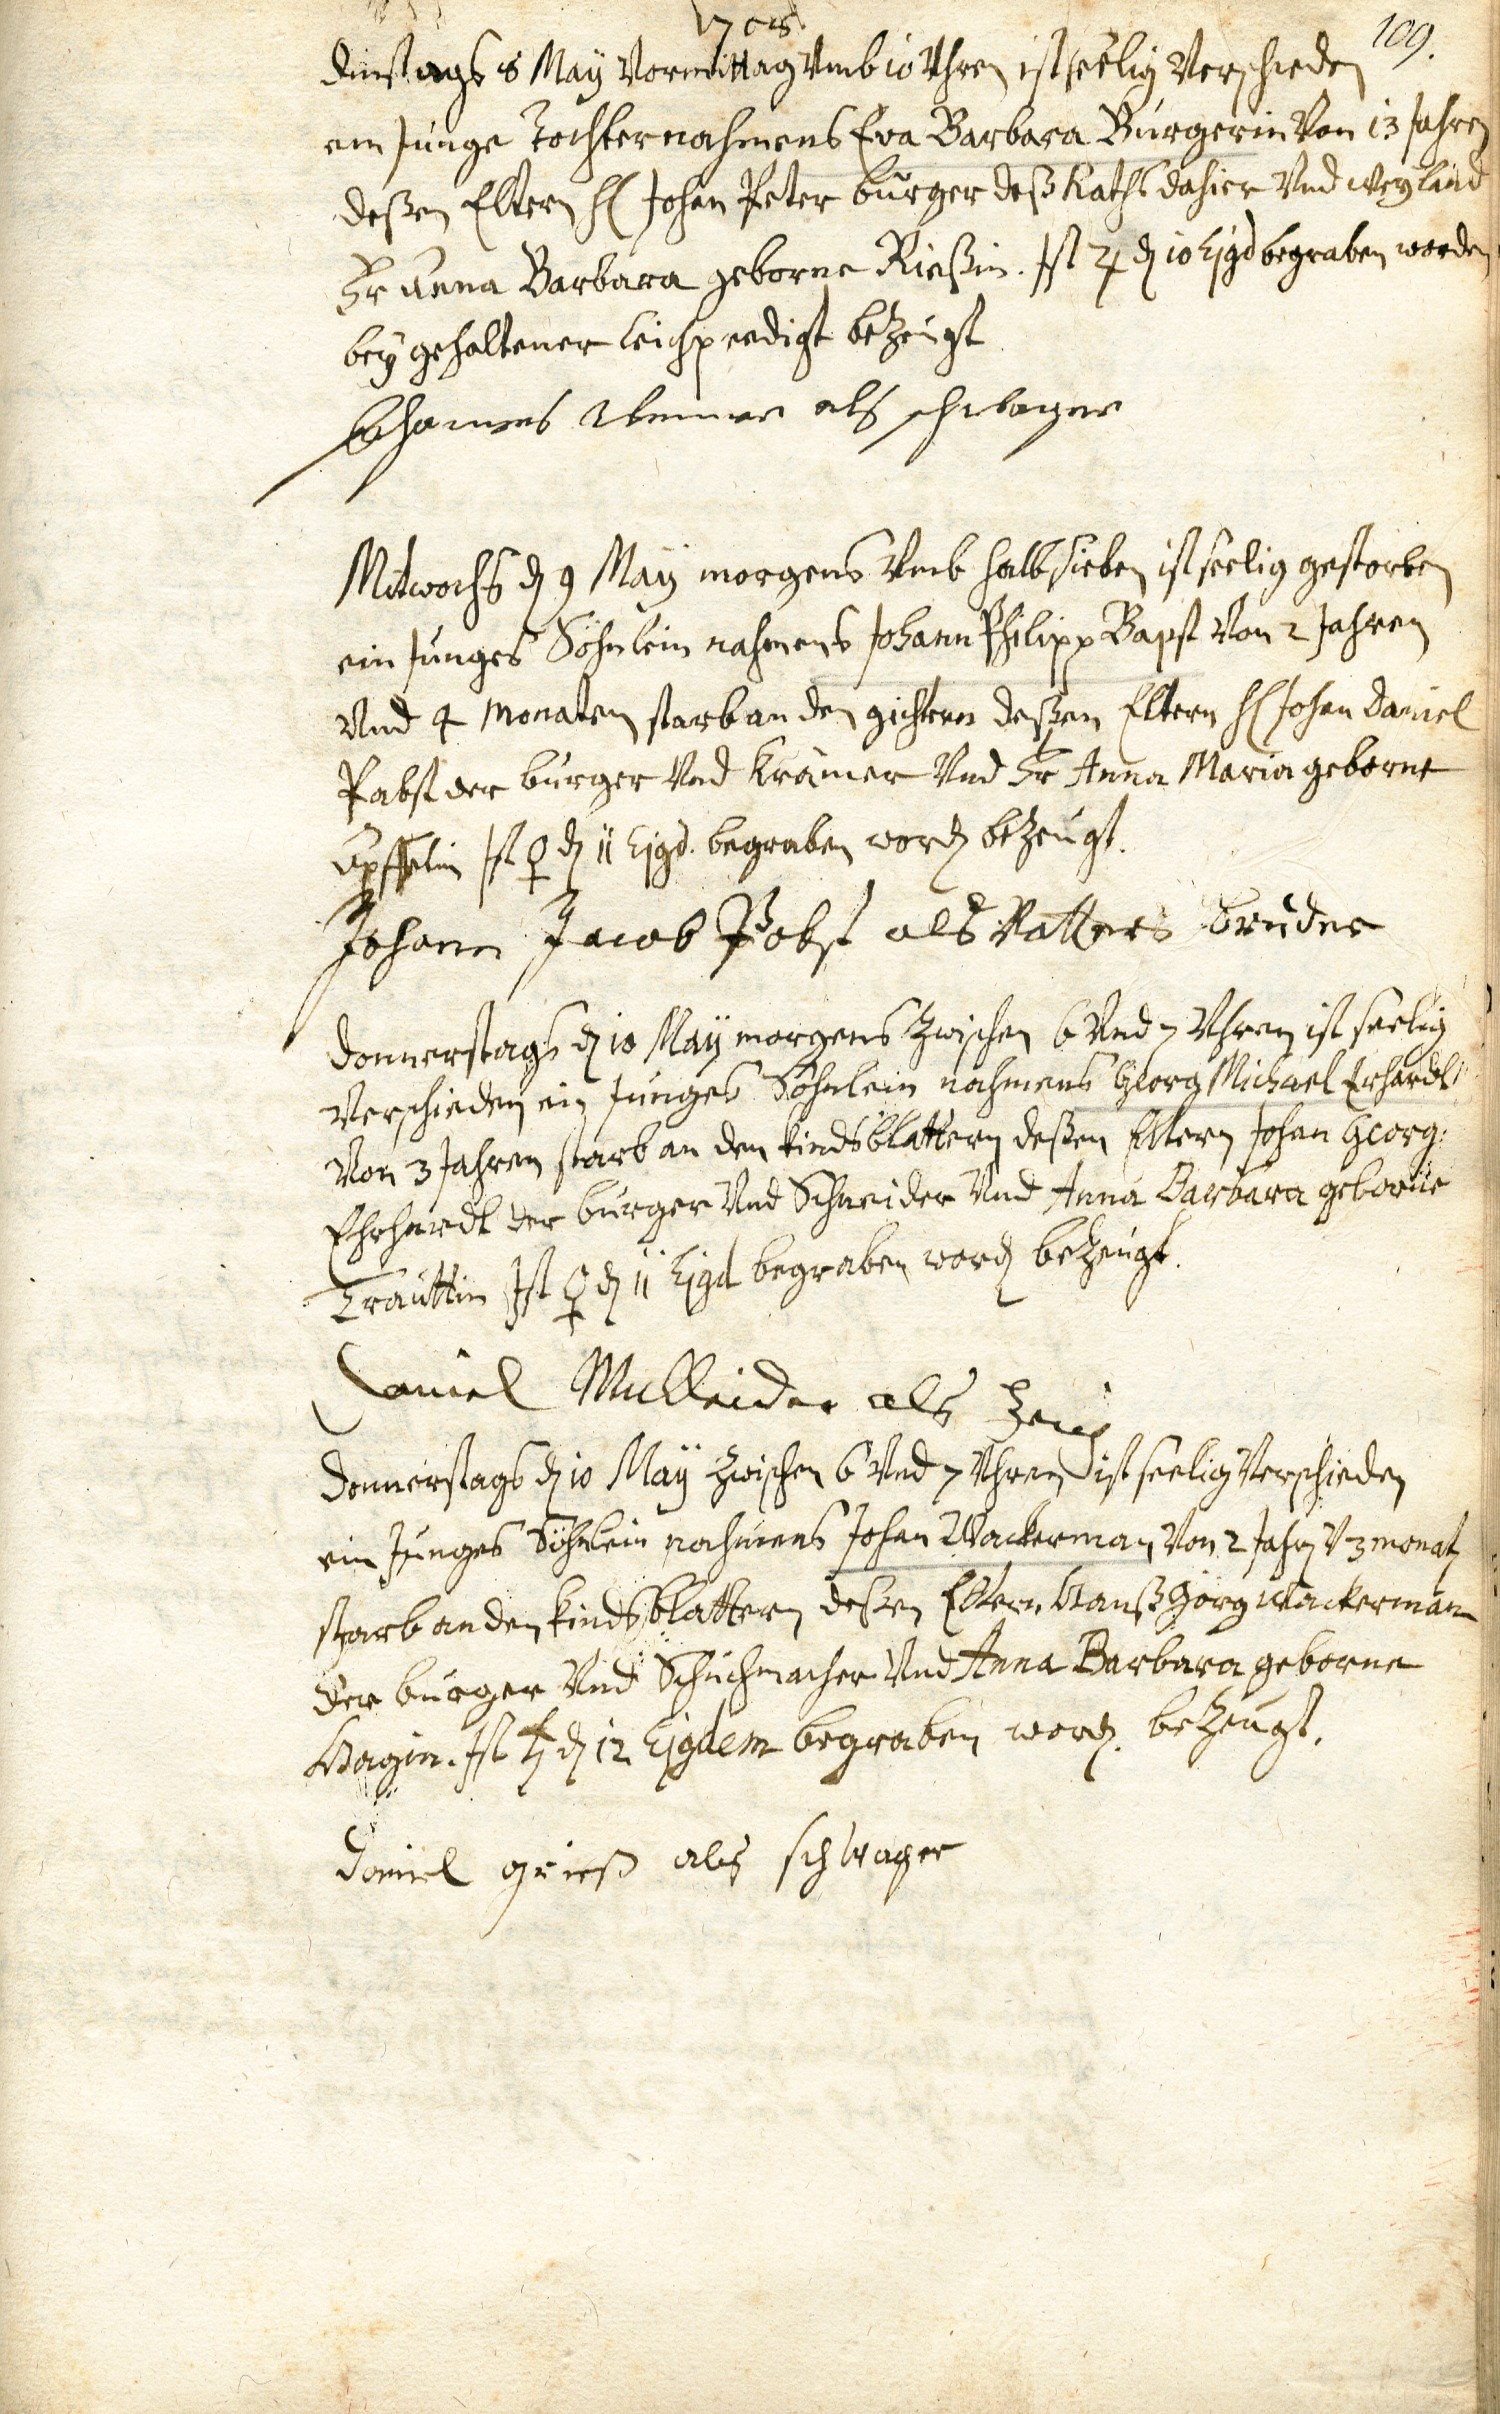 1708
109.
dinstags 8 May Vormittag Vmb 10 Vhren ist seelig Verschieden
ein Junge Tochter nahmens Eva Barbara Burgerin Von 13 Jahren
deßen Eltern H Johan Peter burger deß Raths dahier Vnd weyland
Fr Anna Barbara geborne Rießin. Ist ♃ dn 10 Ejgd begraben worden
bey gehaltener leichpredigt bezeugt
als schwager
Mitwochs dn 9 May morgens Vmb halb sieben ist seelig gestorben
ein Junges Söhnlein nahmens Johann Philipp Bapst Von 2 Jahren
Vnd 4 Monaten starb an den gichtern deßen Eltern H Johan Daniel
Pabst der burger Vnd Krämer Vnd Fr Anna Maria geborne
Ist ♀ dn 11 Ejgd. begraben word bezeugt.
Johann Jacob Pobst als Vatters bruder
donnerstags dn 10 May morgens Zwischen 6 Vnd 7 Vhren ist seelig
Verschieden ein Junges Söhnlein nahmens Georg Michael Erhardt
Von 3 Jahren starb an den kindsblattern deßen Eltern Johan Georg
Ehrhardt der burger Vnd Schneider Vnd Anna Barbara geborne
Trauttin Ist ♀ dn 11 Ejgd begraben word bezeugt.
Daniel Mulleider als Zeug
donnerstags dn 10 May Zwischen 6 Vnd 7 Vhren ist seelig Verschieden
ein Junges Söhnlein nahmens Johan Wackerman Von 2 Jahr V 3 monat
starb an den kindsblattern deßen Eltern Hanß Görg Wackerman
der burger Vnd Schuchmacher Vnd Anna Barbara geborne
Hagin. Ist ♄ dn 12 Ejgdem begraben word. bezeugt.
Daniel grieß als schwager